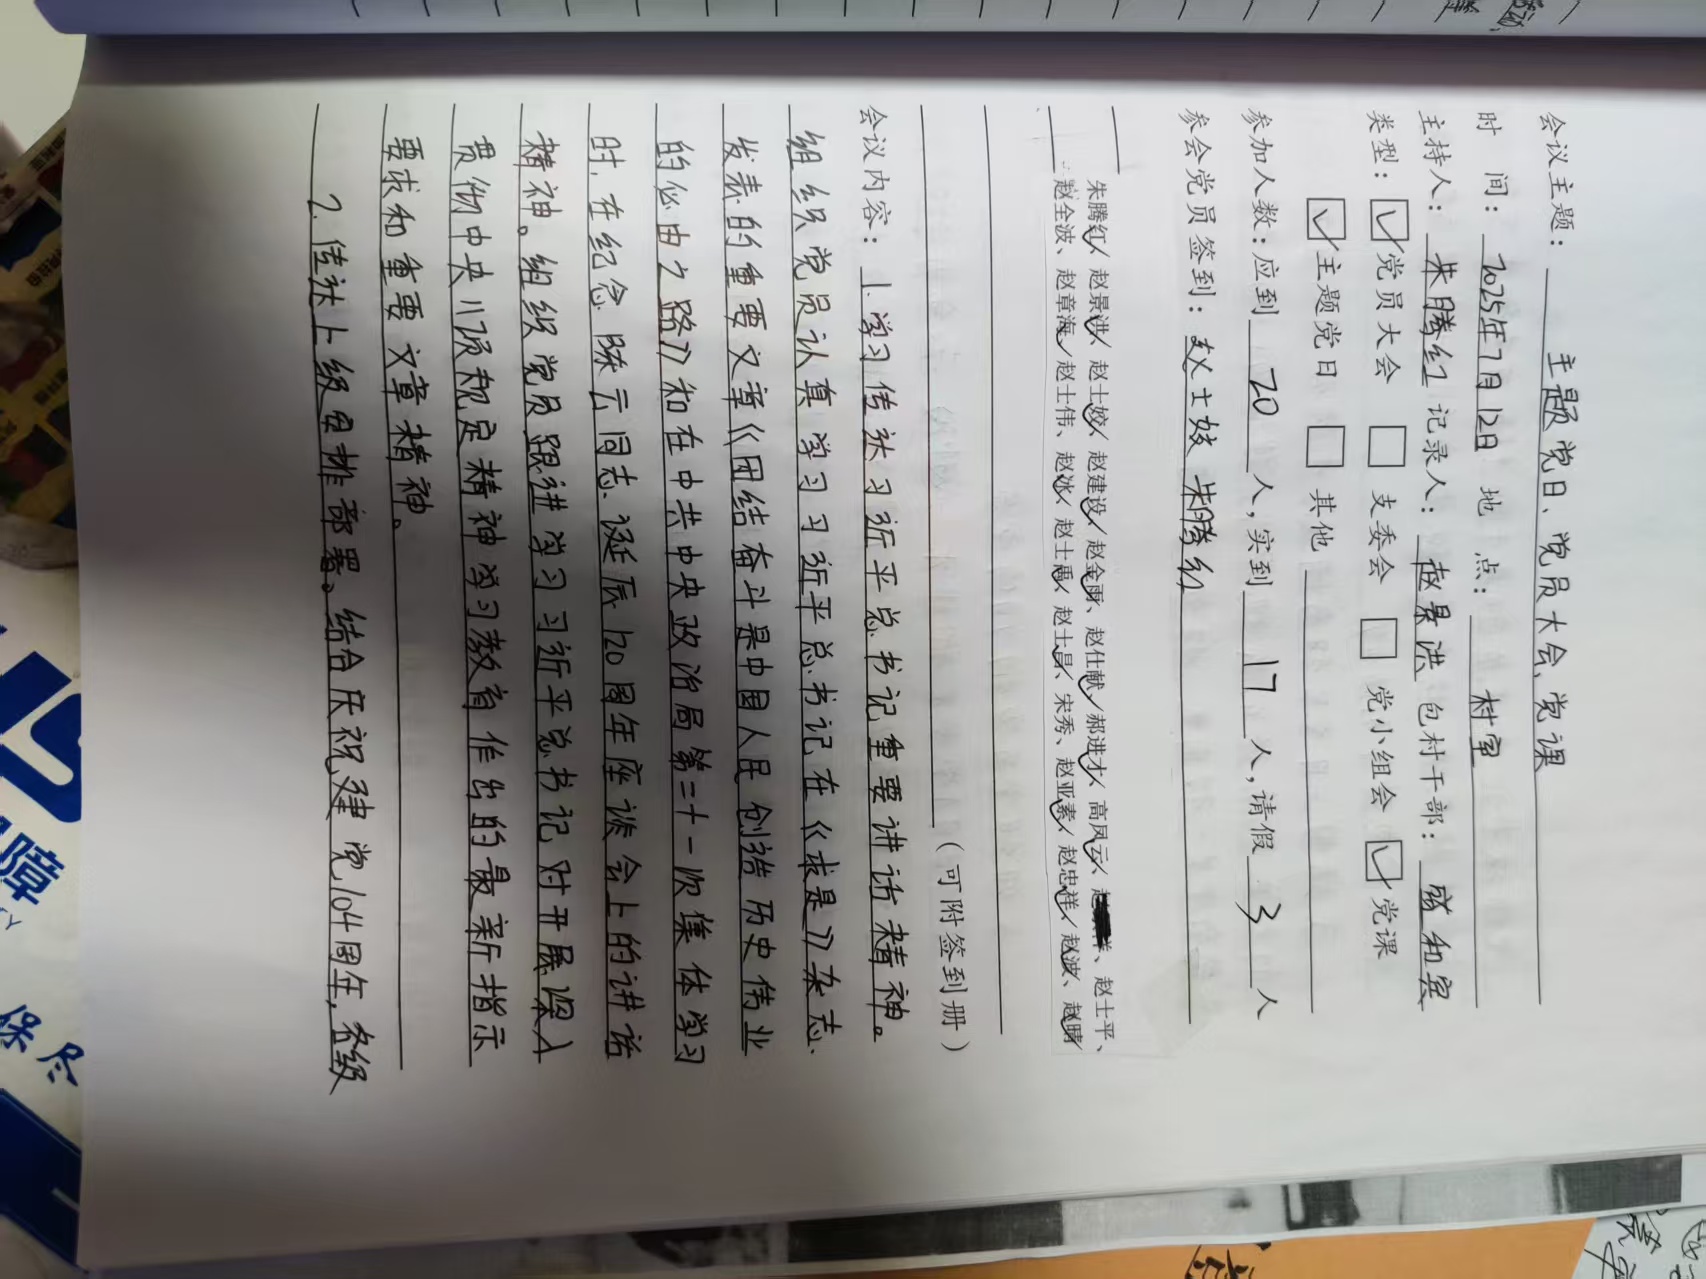 会议主题：主题党日、党员大会、党课
时 间：2025年7月12日 地 点：村室
主持人：朱腾红 记录人：赵景洪 包村干部：盛和宾
类型：☑党员大会 □ 支委会 □ 党小组会 ☑党课
☑主题党日 □ 其他
参加人数：应到 20 人，实到 17 人，请假 3 人
参会党员签到：赵士姣 朱腾红
朱腾红、赵景洪、赵士姣、赵建设、赵金雨、赵仕献、郝进才、高凤云、赵 祥、赵士平、
赵全波、赵章海、赵士伟、赵冰、赵士禹、赵士昌、宋秀、赵亚素、赵忠祥、赵波、赵晴
（可附签到册）
会议内容：1.学习传达习近平总书记重要讲话精神。
组织党员认真学习习近平总书记在《求是》杂志
发表的重要文章《团结奋斗是中国人民创造历史伟业
的必由之路》和在中共中央政治局第二十一次集体学习
时，在纪念陈云同志诞辰120周年座谈会上的讲话
精神。组织党员跟进学习习近平总书记对开展深入
贯彻中央八项规定精神学习教育作出的最新指示
要求和重要文章精神。
2.传达上级安排部署。结合庆祝建党104周年，各级
障
TY
保 尽